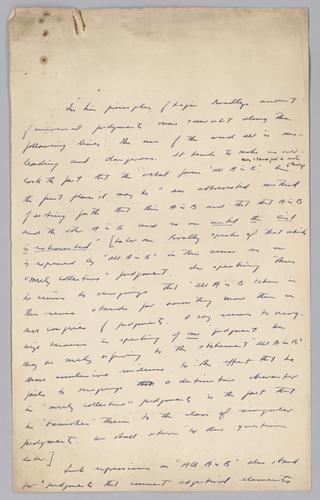 In his principles of Logic Bradleys account
of universal judgments runs somewhat along the
following lines. The use of the word all is mis-
leading and dangerous. It tends to make us over-
look the fact that the verbal form "All A is B"
the first place it may be "an abbreviated method
of setting forth that this A is B and that that A is B
and the other A is B and so on until the list
is exhausted". [Later on Bradley speaks of that which
is expressed by "All A is B" in this sense as a
"merely collective" judgment. In speaking thus
he seems to recognize that "All A is B" taken in
this sense stands for something more than a
mere congeries of judgments. I say seems to recog-
nize because in speaking of one judgment he
may be merely referring to the statement "All A is B".
More conclusive evidence to the effect that he
fails to recognize a distinctive character
in "merely collective" judgments is the fact that
he "banishes" them to the class of singular
judgments. We shall return to this question
later.]
Such expressions as "All A is B" also stand
for "judgments that connect adjectival elements